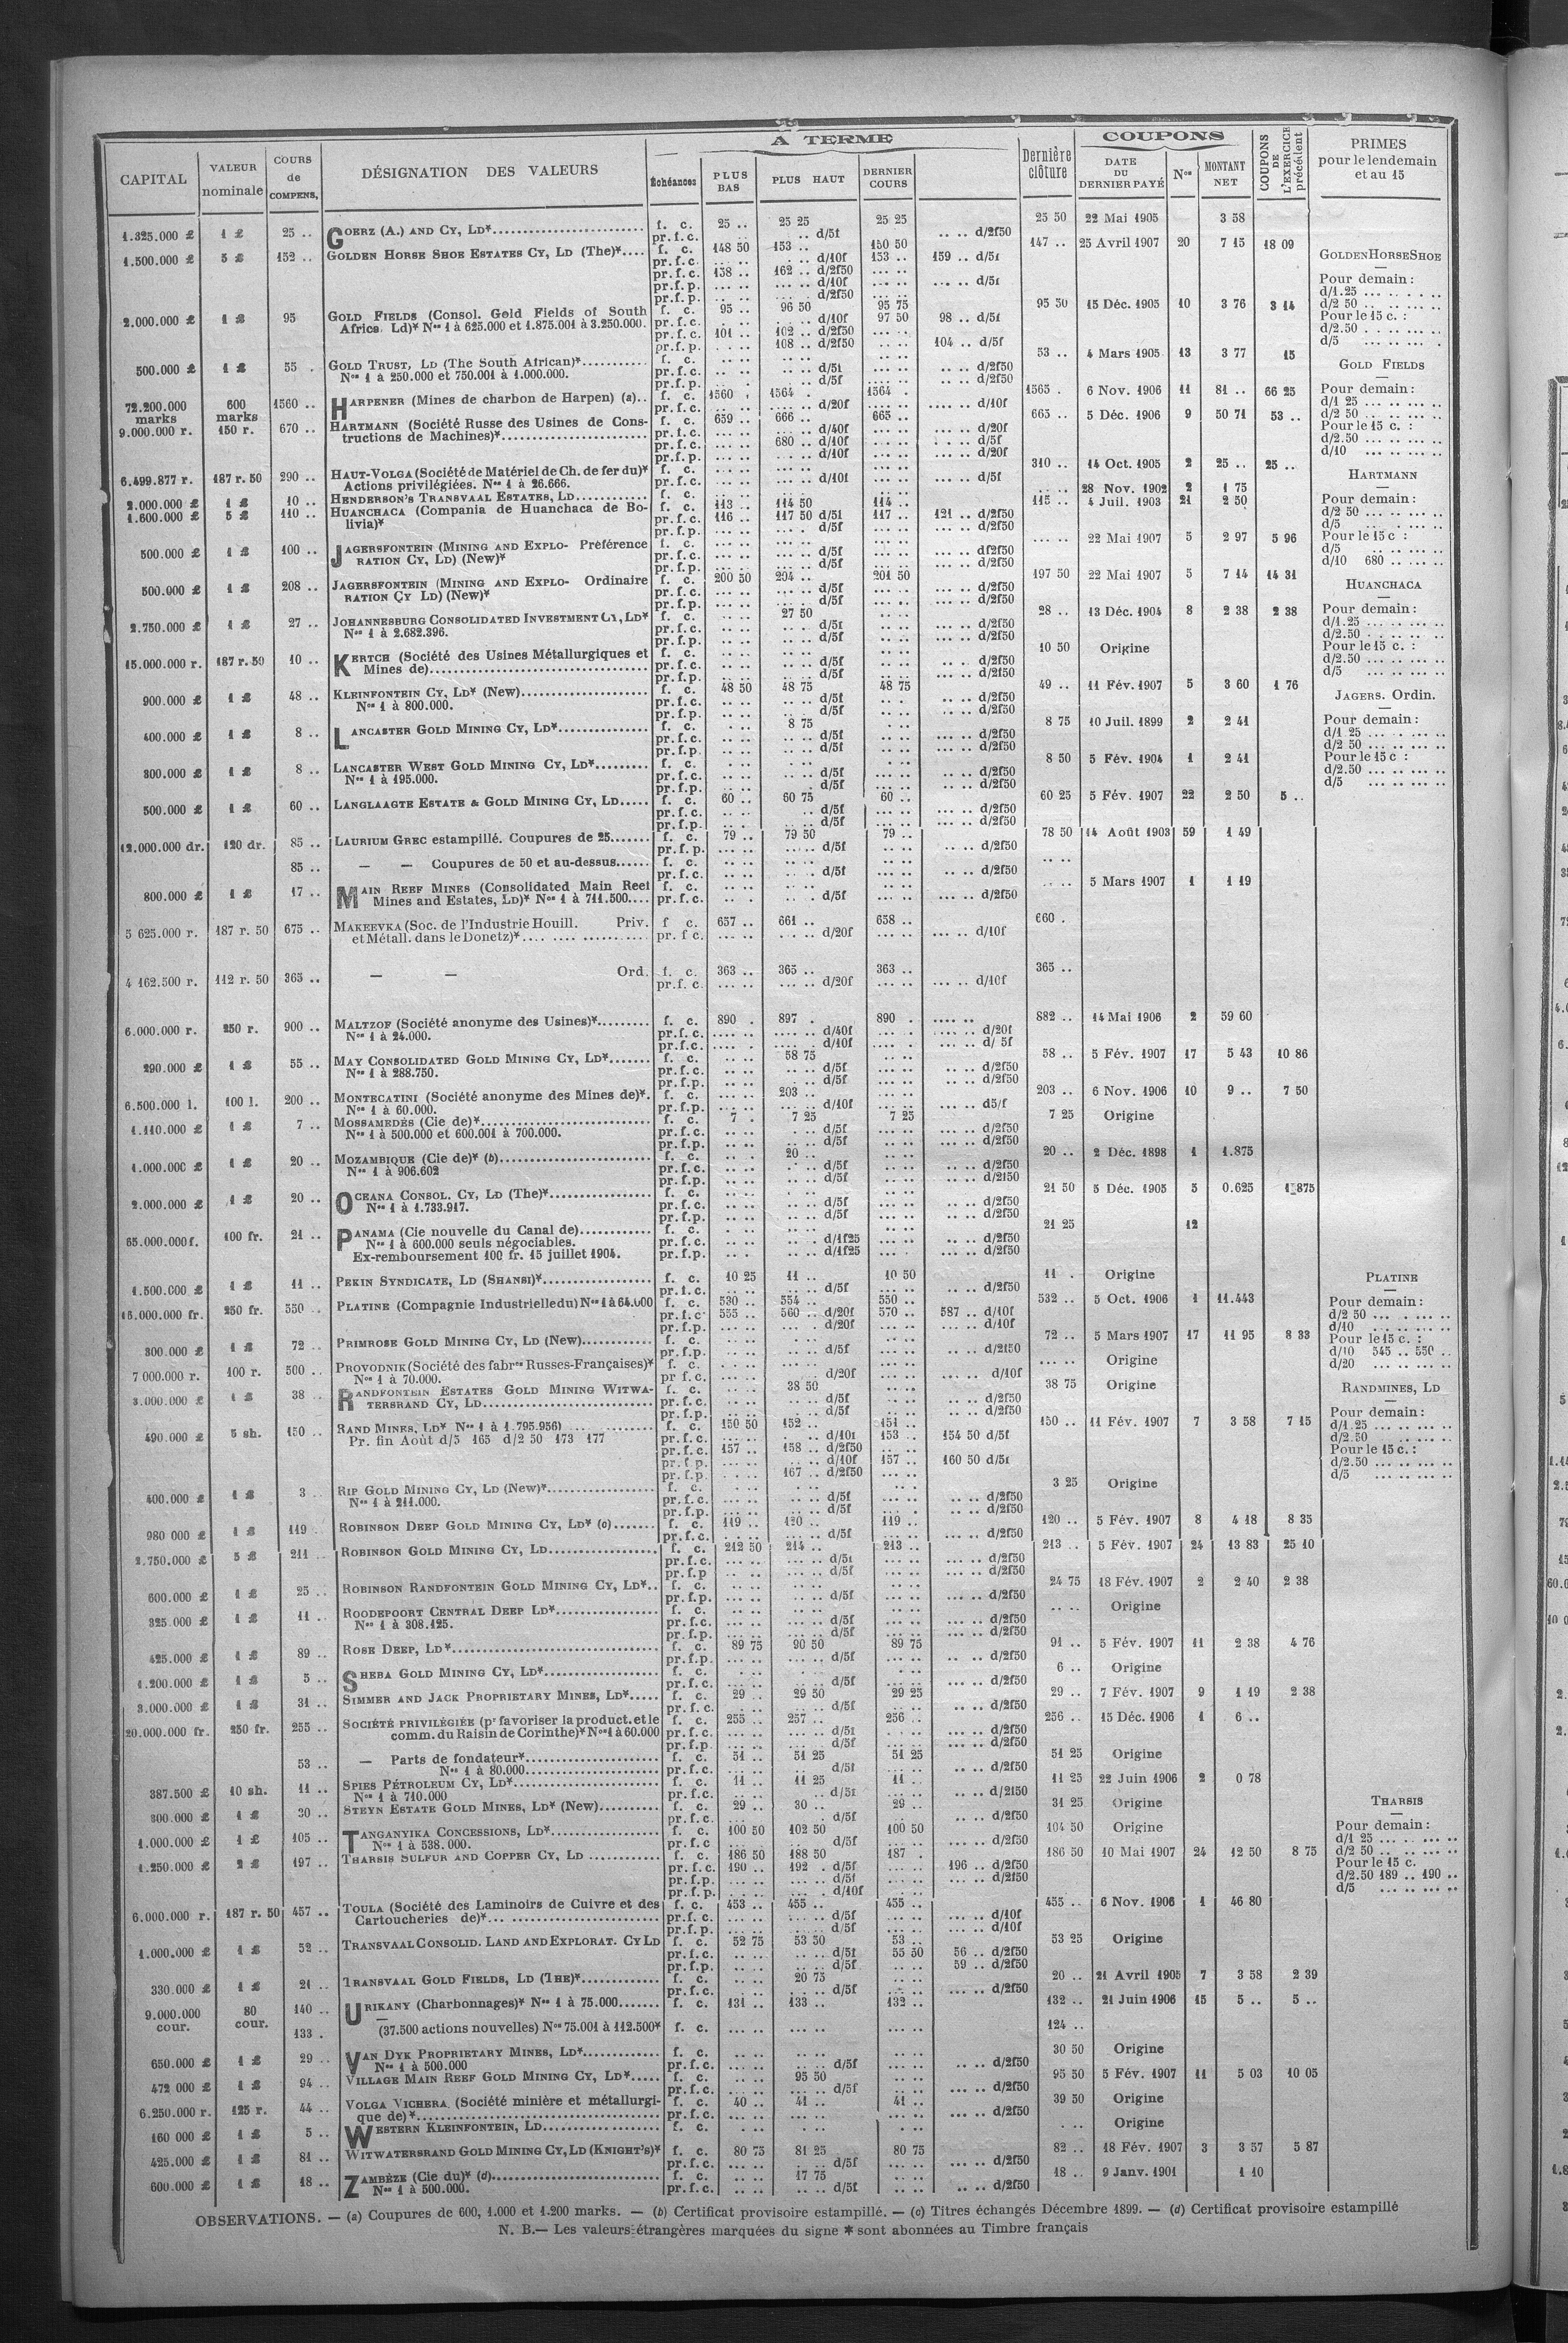 CAPITAL | VALEUR nominale | COURS de COMPENS. | DÉSIGNATION DES VALEURS | A TERME | Dernière clôture | COUPONS | COUPONS DE L'EXERCICE précédent | PRIMES pour le lendemain et au 15
Échéances | PLUS BAS | PLUS HAUT | DERNIER COURS | DATE DU DERNIER PAYÉ | Nos | MONTANT NET
1.325.000 £ | 1 £ | 25 .. | GOERZ (A.) AND CY, LD* | f. c. | 25 .. | 25 25 | 25 25 | 25 50 | 22 Mai 1905 | 3 58
pr.f.c. | .. d/5f | .. .. d/2f50
1.500.000 £ | 5 £ | 152 .. | GOLDEN HORSE SHOE ESTATES CY, LD (The)* | f. c. | 148 50 | 153 .. | 150 50 | 147 .. | 25 Avril 1907 | 20 | 7 15 | 18 09
pr.f.c. | .. d/10f | 153 .. | 159 .. d/5f
pr.f.c. | 158 .. | 162 .. d/2f50
pr.f.p. | d/10f | d/5f
pr.f.p. | d/2f50
2.000.000 £ | 1 £ | 95 | GOLD FIELDS (Consol. Gold Fields of South | f. c. | 95 .. | 96 50 | 95 75 | 95 50 | 15 Déc. 1905 | 10 | 3 76 | 3 14
Africa Ld)* Nos 1 à 625.000 et 1.875.001 à 3.250.000. | pr.f.c. | d/10f | 97 50 | 98 .. d/5f
pr.f.c. | 101 .. | 102 .. d/2f50
pr.f.p. | 108 .. d/2f50 | 104 .. d/5f
500.000 £ | 1 £ | 55 . | GOLD TRUST, LD (The South African)* | f. c. | 53 .. | 4 Mars 1905 | 13 | 3 77 | 15
Nos 1 à 250.000 et 750.001 à 1.000.000. | pr.f.c. | d/5f | d/2f50
pr.f.p. | d/5f | d/2f50
72.200.000 marks | 600 marks | 1560 .. | HARPENER (Mines de charbon de Harpen) (a).. | f. c. | 1560 . | 1564 . | 1564 . | 1565 . | 6 Nov. 1906 | 11 | 81 .. | 66 25
pr.f.c. | d/20f | d/10f
9.000.000 r. | 150 r. | 670 .. | HARTMANN (Société Russe des Usines de Cons- | f. c. | 659 .. | 666 .. | 665 .. | 665 .. | 5 Déc. 1906 | 9 | 50 71 | 53 ..
tructions de Machines)* | pr.f.c. | d/40f | d/20f
pr.f.c. | 680 .. d/10f | d/5f
pr.f.p. | d/10f | d/20f
6.499.877 r. | 187 r. 50 | 290 .. | HAUT-VOLGA (Société de Matériel de Ch. de fer du)* | f. c. | 310 .. | 14 Oct. 1905 | 2 | 25 .. | 25 ..
Actions privilégiées. Nos 1 à 26.666. | pr.f.c. | d/10f | d/5f
2.000.000 £ | 1 £ | 10 .. | HENDERSON'S TRANSVAAL ESTATES, LD | f. c. | 28 Nov. 1902 | 2 | 1 75
1.600.000 £ | 5 £ | 110 .. | HUANCHACA (Compania de Huanchaca de Bo- | f. c. | 113 .. | 114 50 | 114 .. | 115 .. | 4 Juil. 1903 | 21 | 2 50
livia)* | pr.f.c. | 116 .. | 117 50 d/5f | 117 .. | 121 .. d/2f50
pr.f.p. | d/5f | d/2f50
500.000 £ | 1 £ | 100 .. | JAGERSFONTEIN (MINING AND EXPLO- Préférence | f. c. | 22 Mai 1907 | 5 | 2 97 | 5 96
RATION CY, LD) (New)* | pr.f.c. | d/5f | df2f50
pr.f.p. | d/5f | d/2f50
500.000 £ | 1 £ | 208 .. | JAGERSFONTEIN (MINING AND EXPLO- Ordinaire | f. c. | 200 50 | 204 .. | 201 50 | 197 50 | 22 Mai 1907 | 5 | 7 14 | 14 31
RATION CY LD) (New)* | pr.f.c. | d/5f | d/2f50
pr.f.p. | d/5f | d/2f50
2.750.000 £ | 1 £ | 27 .. | JOHANNESBURG CONSOLIDATED INVESTMENT CY, LD* | f. c. | 27 50 | 28 .. | 13 Déc. 1904 | 8 | 2 38 | 2 38
Nos 1 à 2.682.396. | pr.f.c. | d/5f | d/2f50
pr.f.p. | d/5f | d/2f50
15.000.000 r. | 187 r. 50 | 10 .. | KERTCH (Société des Usines Métallurgiques et | f. c. | 10 50 | Origine
Mines de) | pr.f.c. | d/5f | d/2f50
pr.f.p. | d/5f | d/2f50
900.000 £ | 1 £ | 48 .. | KLEINFONTEIN CY, LD* (New) | f. c. | 48 50 | 48 75 | 48 75 | 49 .. | 11 Fév. 1907 | 5 | 3 60 | 1 76
Nos 1 à 800.000. | pr.f.c. | d/5f | d/2f50
pr.f.p. | d/5f | d/2f50
400.000 £ | 1 £ | 8 .. | LANCASTER GOLD MINING CY, LD* | f. c. | 8 75 | 8 75 | 10 Juil. 1899 | 2 | 2 41
pr.f.c. | d/5f | d/2f50
pr.f.p. | d/5f | d/2f50
300.000 £ | 1 £ | 8 .. | LANCASTER WEST GOLD MINING CY, LD* | f. c. | 8 50 | 5 Fév. 1904 | 1 | 2 41
Nos 1 à 195.000. | pr.f.c. | d/5f | d/2f50
pr.f.p. | d/5f | d/2f50
500.000 £ | 1 £ | 60 .. | LANGLAAGTE ESTATE & GOLD MINING CY, LD | f. c. | 60 .. | 60 75 | 60 .. | 60 25 | 5 Fév. 1907 | 22 | 2 50 | 5 ..
pr.f.c. | d/5f | d/2f50
pr.f.p. | d/5f | d/2f50
12.000.000 dr. | 120 dr. | 85 .. | LAURIUM GREC estampillé. Coupures de 25 | f. c. | 79 .. | 79 50 | 79 .. | 78 50 | 14 Août 1903 | 59 | 1 49
pr.f.p. | d/5f | d/2f50
85 .. | — — Coupures de 50 et au-dessus | f. c.
pr.f.c. | d/5f | d/2f50
800.000 £ | 1 £ | 17 .. | MAIN REEF MINES (Consolidated Main Reef | f. c. | 5 Mars 1907 | 1 | 1 19
Mines and Estates, LD)* Nos 1 à 711.500 | pr.f.c. | d/5f | d/2f50
5 625.000 r. | 187 r. 50 | 675 .. | MAKEEVKA (Soc. de l'Industrie Houill. Priv. | f c. | 657 .. | 661 .. | 658 .. | 660 .
et Métall. dans le Donetz)* | pr. f c. | d/20f | d/10f
4 162.500 r. | 112 r. 50 | 365 .. | — — Ord. | f. c. | 363 .. | 365 .. | 363 .. | 365 ..
pr.f. c. | d/20f | d/10f
6.000.000 r. | 250 r. | 900 .. | MALTZOF (Société anonyme des Usines)* | f. c. | 890 . | 897 . | 890 . | 882 .. | 14 Mai 1906 | 2 | 59 60
Nos 1 à 24.000. | pr.f.c. | d/40f | d/20f
pr.f.c. | d/10f | d/ 5f
290.000 £ | 1 £ | 55 .. | MAY CONSOLIDATED GOLD MINING CY, LD* | f. c. | 58 75 | 58 .. | 5 Fév. 1907 | 17 | 5 43 | 10 86
Nos 1 à 288.750. | pr.f.c. | d/5f | d/2f50
pr.f.p. | d/5f | d/2f50
6.500.000 l. | 100 l. | 200 .. | MONTECATINI (Société anonyme des Mines de)*. | f. c. | 203 .. | 203 .. | 6 Nov. 1906 | 10 | 9 .. | 7 50
Nos 1 à 60.000. | pr.f.p. | d/10f | d5/f
1.110.000 £ | 1 £ | 7 .. | MOSSAMEDÈS (Cie de)* | f. c. | 7 . | 7 25 | 7 25 | 7 25 | Origine
Nos 1 à 500.000 et 600.001 à 700.000. | pr.f.c. | d/5f | d/2f50
pr.f.p. | d/5f | d/2f50
1.000.000 £ | 1 £ | 20 .. | MOZAMBIQUE (Cie de)* (b) | f. c. | 20 .. | 20 .. | 2 Déc. 1898 | 1 | 1.875
Nos 1 à 906.602 | pr.f.c. | d/5f | d/2f50
pr.f.p. | d/5f | d/2f50
2.000.000 £ | 1 £ | 20 .. | OCEANA CONSOL. CY, LD (The)* | f. c. | 21 50 | 5 Déc. 1905 | 5 | 0.625 | 1.875
Nos 1 à 1.733.917. | pr.f.c. | d/5f | d/2f50
pr.f.p. | d/5f | d/2f50
65.000.000 f. | 100 fr. | 21 .. | PANAMA (Cie nouvelle du Canal de) | f. c. | 21 25 | 12
Nos 1 à 600.000 seuls négociables. | pr.f.c. | d/1f25 | d/2f50
Ex-remboursement 100 fr. 15 juillet 1904. | pr.f.p. | d/1f25 | d/2f50
1.500.000 £ | 1 £ | 11 .. | PEKIN SYNDICATE, LD (SHANSI)* | f. c. | 10 25 | 11 .. | 10 50 | 11 . | Origine
pr.f.c. | d/5f | d/2f50
15.000.000 fr. | 250 fr. | 550 .. | PLATINE (Compagnie Industrielle du) Nos 1 à 64.000 | f. c. | 530 .. | 554 .. | 550 .. | 532 .. | 5 Oct. 1906 | 1 | 11.443
pr.f.c | 555 .. | 560 .. d/20f | 570 .. | 587 .. d/10f
pr.f.p. | d/20f | d/10f
300.000 £ | 1 £ | 72 .. | PRIMROSE GOLD MINING CY, LD (New) | f. c. | 72 .. | 5 Mars 1907 | 17 | 11 95 | 8 33
pr.f.p. | d/5f | d/2f50
7 000.000 r. | 100 r. | 500 .. | PROVODNIK (Société des fabres Russes-Françaises)* | f. c. | Origine
Nos 1 à 70.000. | pr f.c. | d/20f | d/10f
3.000.000 £ | 1 £ | 38 .. | RANDFONTEIN ESTATES GOLD MINING WITWA- | f. c. | 38 50 | 38 75 | Origine
TERSRAND CY, LD | pr.f.c. | d/5f | d/2f50
pr.f.p. | d/5f | d/2f50
490.000 £ | 5 sh. | 150 .. | RAND MINES, LD* Nos 1 à 1.795.956) | f. c. | 150 50 | 152 .. | 151 .. | 150 .. | 11 Fév. 1907 | 7 | 3 58 | 7 15
Pr. fin Août d/5 165 d/2 50 173 177 | pr.f.c. | d/10f | 153 .. | 154 50 d/5f
pr.f.c. | 157 .. | 158 .. d/2f50
pr.f.p. | d/10f | 157 .. | 160 50 d/5f
pr.f.p. | 167 .. d/2f50
400.000 £ | 1 £ | 3 .. | RIP GOLD MINING CY, LD (New)* | f. c. | 3 25 | Origine
Nos 1 à 211.000. | pr.f.c. | d/5f | d/2f50
pr.f.p. | d/5f | d/2f50
980 000 £ | 1 £ | 119 | ROBINSON DEEP GOLD MINING CY, LD* (c) | f. c. | 119 .. | 120 .. | 119 .. | 120 .. | 5 Fév. 1907 | 8 | 4 18 | 8 35
pr.f.c. | d/5f | d/2f50
2.750.000 £ | 5 £ | 211 | ROBINSON GOLD MINING CY, LD | f. c. | 212 50 | 214 .. | 213 .. | 213 .. | 5 Fév. 1907 | 24 | 13 83 | 25 10
pr.f.c. | d/5f | d/2f50
pr.f.p | d/5f | d/2f50
600.000 £ | 1 £ | 25 .. | ROBINSON RANDFONTEIN GOLD MINING CY, LD*.. | f. c. | 24 75 | 18 Fév. 1907 | 2 | 2 40 | 2 38
pr.f.p. | d/5f | d/2f50
325.000 £ | 1 £ | 11 .. | ROODEPOORT CENTRAL DEEP LD* | f. c. | Origine
Nos 1 à 308.125. | pr.f.c. | d/5f | d/2f50
pr.f.p. | d/5f | d/2f50
425.000 £ | 1 £ | 89 .. | ROSE DEEP, LD* | f. c. | 89 75 | 90 50 | 89 75 | 91 .. | 5 Fév. 1907 | 11 | 2 38 | 4 76
pr.f.p. | d/5f | d/2f50
1.200.000 £ | 1 £ | 5 .. | SHEBA GOLD MINING CY, LD* | f. c. | 6 .. | Origine
pr.f.c. | d/5f | d/2f50
3.000.000 £ | 1 £ | 31 .. | SIMMER AND JACK PROPRIETARY MINES, LD* | f. c. | 29 .. | 29 50 | 29 25 | 29 .. | 7 Fév. 1907 | 9 | 1 19 | 2 38
pr.f.c. | d/5f | d/2f50
20.000.000 fr. | 250 fr. | 255 .. | SOCIÉTÉ PRIVILÉGIÉE (pr favoriser la product. et le | f. c. | 255 .. | 257 .. | 256 .. | 256 .. | 15 Déc. 1906 | 1 | 6 ..
comm. du Raisin de Corinthe)* Nos 1 à 60.000 | pr.f.c. | d/5f | d/2f50
pr.f.p. | d/5f | d/2f50
53 .. | — Parts de fondateur* | f. c. | 51 .. | 51 25 | 51 25 | 51 25 | Origine
Nos 1 à 80.000 | pr.f.c. | d/5f | d/2f50
387.500 £ | 10 sh. | 11 .. | SPIES PÉTROLEUM CY, LD* | f. c. | 11 .. | 11 25 | 11 .. | 11 25 | 22 Juin 1906 | 2 | 0 78
Nos 1 à 710.000 | pr.f.c. | d/5f | d/2f50
300.000 £ | 1 £ | 30 .. | STEYN ESTATE GOLD MINES, LD* (New) | f. c. | 29 .. | 30 .. | 29 .. | 31 25 | Origine
pr.f.c. | d/5f | d/2f50
1.000.000 £ | 1 £ | 105 .. | TANGANYIKA CONCESSIONS, LD* | f. c. | 100 50 | 102 50 | 100 50 | 104 50 | Origine
Nos 1 à 538.000. | pr.f.c | d/5f | d/2f50
1.250.000 £ | 2 £ | 197 .. | THARSIS SULFUR AND COPPER CY, LD | f. c | 186 50 | 188 50 | 187 . | 186 50 | 10 Mai 1907 | 24 | 12 50 | 8 75
pr.f.c. | 190 .. | 192 . d/5f | 196 .. d/2f50
pr.f.p. | d/5f | d/2f50
pr.f.p. | d/10f
6.000.000 r. | 187 r. 50 | 457 .. | TOULA (Société des Laminoirs de Cuivre et des | f. c. | 453 .. | 455 .. | 455 .. | 455 .. | 6 Nov. 1906 | 1 | 46 80
Cartoucheries de)* | pr.f.c. | d/5f | d/10f
pr.f.p. | d/5f | d/10f
1.000.000 £ | 1 £ | 52 .. | TRANSVAAL CONSOLID. LAND AND EXPLORAT. CY LD | f. c. | 52 75 | 53 50 | 53 .. | 53 25 | Origine
pr.f.c. | d/5f | 55 50 | 56 .. d/2f50
pr.f.p. | d/5f | 59 .. d/2f50
330.000 £ | 1 £ | 21 .. | TRANSVAAL GOLD FIELDS, LD (THE)* | f. c. | 20 75 | 20 .. | 21 Avril 1905 | 7 | 3 58 | 2 39
pr.f.c. | d/5f | d/2f50
9.000.000 cour. | 80 cour. | 140 .. | URIKANY (Charbonnages)* Nos 1 à 75.000 | f. c. | 131 .. | 133 .. | 132 .. | 132 .. | 21 Juin 1906 | 15 | 5 .. | 5 ..
133 . | — (37.500 actions nouvelles) Nos 75.001 à 112.500* | f. c. | 124 ..
650.000 £ | 1 £ | 29 .. | VAN DYK PROPRIETARY MINES, LD* | f. c. | 30 50 | Origine
Nos 1 à 500.000 | pr.f.c. | d/5f | d/2f50
472 000 £ | 1 £ | 94 .. | VILLAGE MAIN REEF GOLD MINING CY, LD* | f. c. | 95 50 | 95 50 | 5 Fév. 1907 | 11 | 5 03 | 10 05
pr.f.c. | d/5f | d/2f50
6.250.000 r. | 125 r. | 44 .. | VOLGA VICHERA (Société minière et métallurgi- | f. c. | 40 .. | 41 .. | 41 .. | 39 50 | Origine
que de)* | pr.f.c. | d/2f50
160 000 £ | 1 £ | 5 .. | WESTERN KLEINFONTEIN, LD | f. c. | Origine
425.000 £ | 1 £ | 81 .. | WITWATERSRAND GOLD MINING CY, LD (KNIGHT'S)* | f. c. | 80 75 | 81 25 | 80 75 | 82 .. | 18 Fév. 1907 | 3 | 3 57 | 5 87
pr.f.c. | d/5f | d/2f50
600.000 £ | 1 £ | 18 .. | ZAMBÈZE (Cie du)* (d) | f. c. | 17 75 | 18 .. | 9 Janv. 1901 | 1 10
Nos 1 à 500.000. | pr.f.c. | d/5f | d/2f50
GOLDEN HORSE SHOE
Pour demain :
d/1.25
d/2 50
Pour le 15 c. :
d/2.50
d/5
GOLD FIELDS
Pour demain :
d/1 25
d/2 50
Pour le 15 c. :
d/2.50
d/10
HARTMANN
Pour demain :
d/2 50
d/5
Pour le 15 c :
d/5
d/10 680
HUANCHACA
Pour demain :
d/1.25
d/2.50
Pour le 15 c. :
d/2.50
d/5
JAGERS. Ordin.
Pour demain :
d/1 25
d/2 50
Pour le 15 c :
d/2.50
d/5
PLATINE
Pour demain :
d/2 50
d/10
Pour le 15 c. :
d/10 545 .. 550 ..
d/20
RANDMINES, LD
Pour demain :
d/1.25
d/2.50
Pour le 15 c. :
d/2.50
d/5
THARSIS
Pour demain :
d/1 25
d/2 50
Pour le 15 c.
d/2.50 189 .. 190 ..
d/5
OBSERVATIONS. — (a) Coupures de 600, 1.000 et 1.200 marks. — (b) Certificat provisoire estampillé. — (c) Titres échangés Décembre 1899. — (d) Certificat provisoire estampillé
N. B.— Les valeurs étrangères marquées du signe * sont abonnées au Timbre français